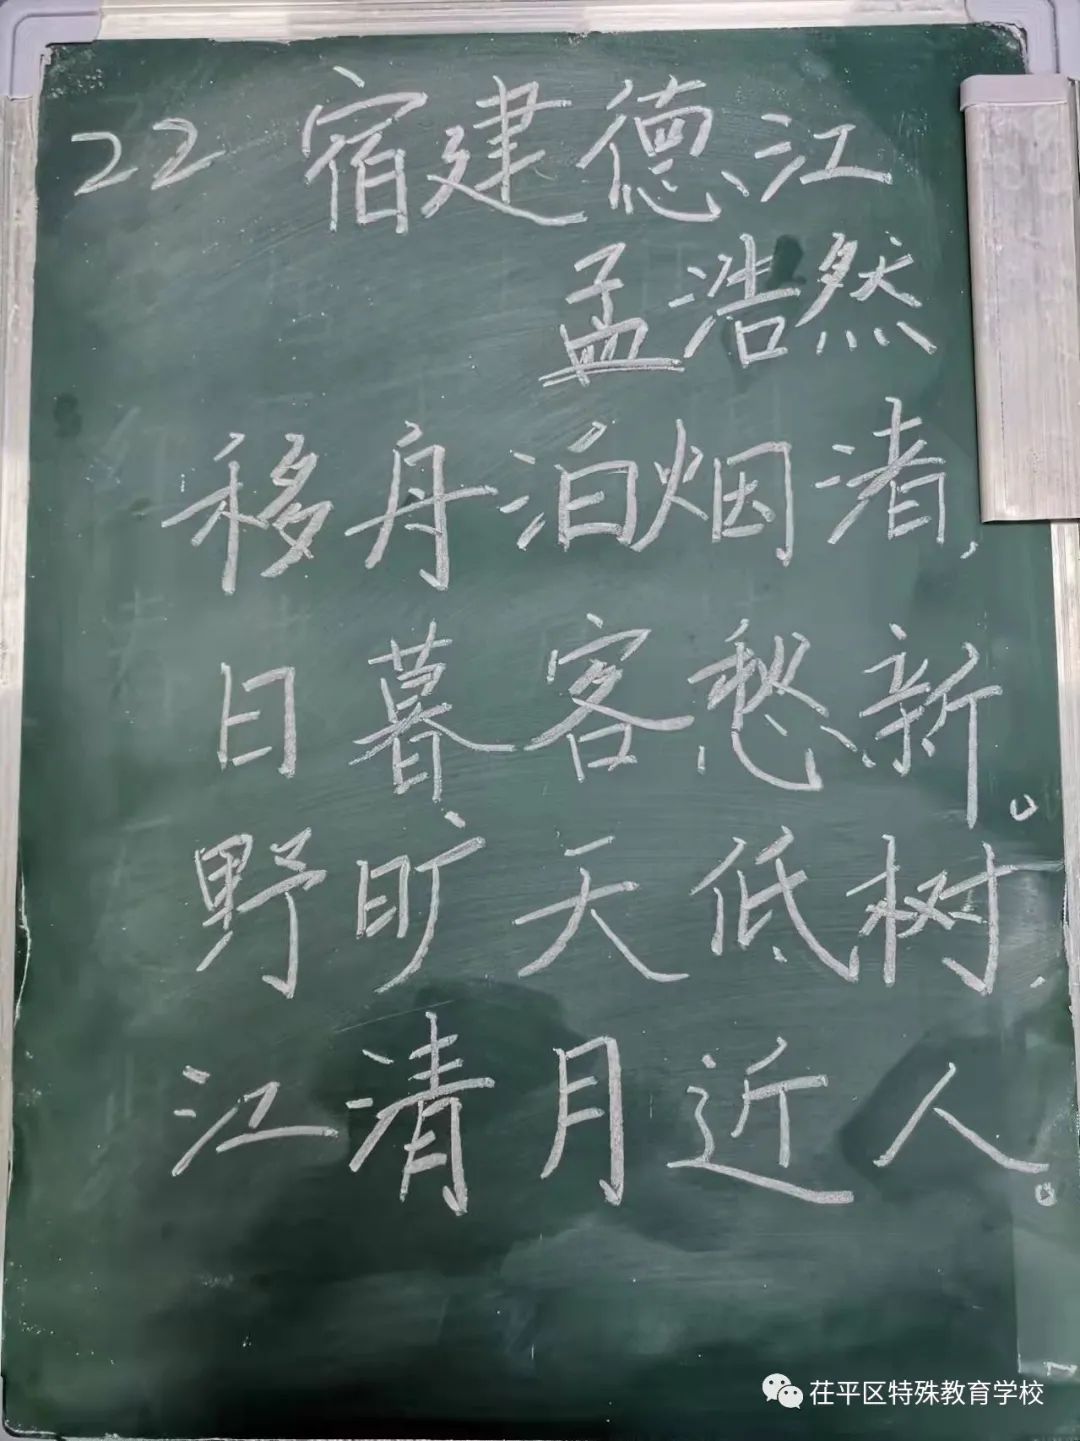 22 宿建德江
孟浩然
移舟泊烟渚,
日暮客愁新。
野旷天低树,
江清月近人。
茌平区特殊教育学校